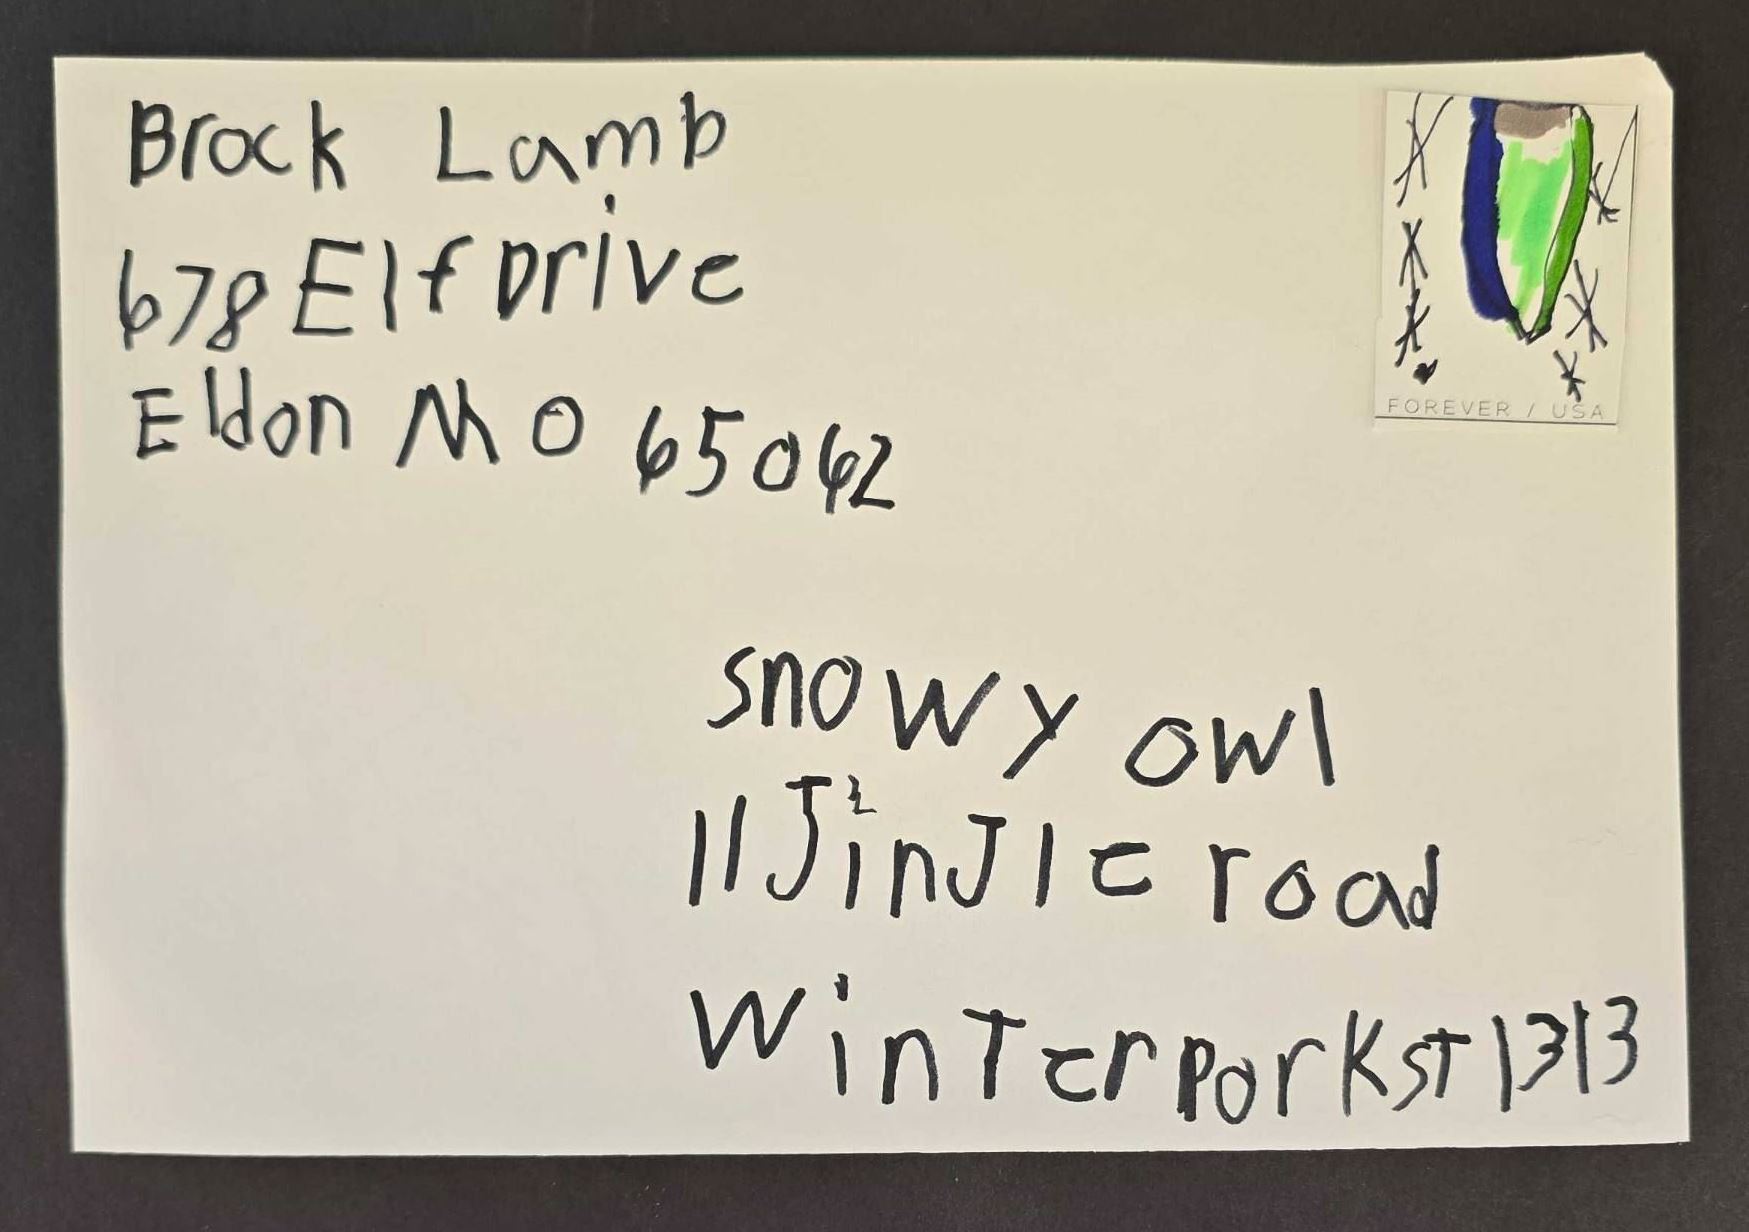 Brock Lamb
678 Elf Drive
Eldon MO 65062
FOREVER / USA
snowy owl
11 JinJle road
winTer Pork sT 1313